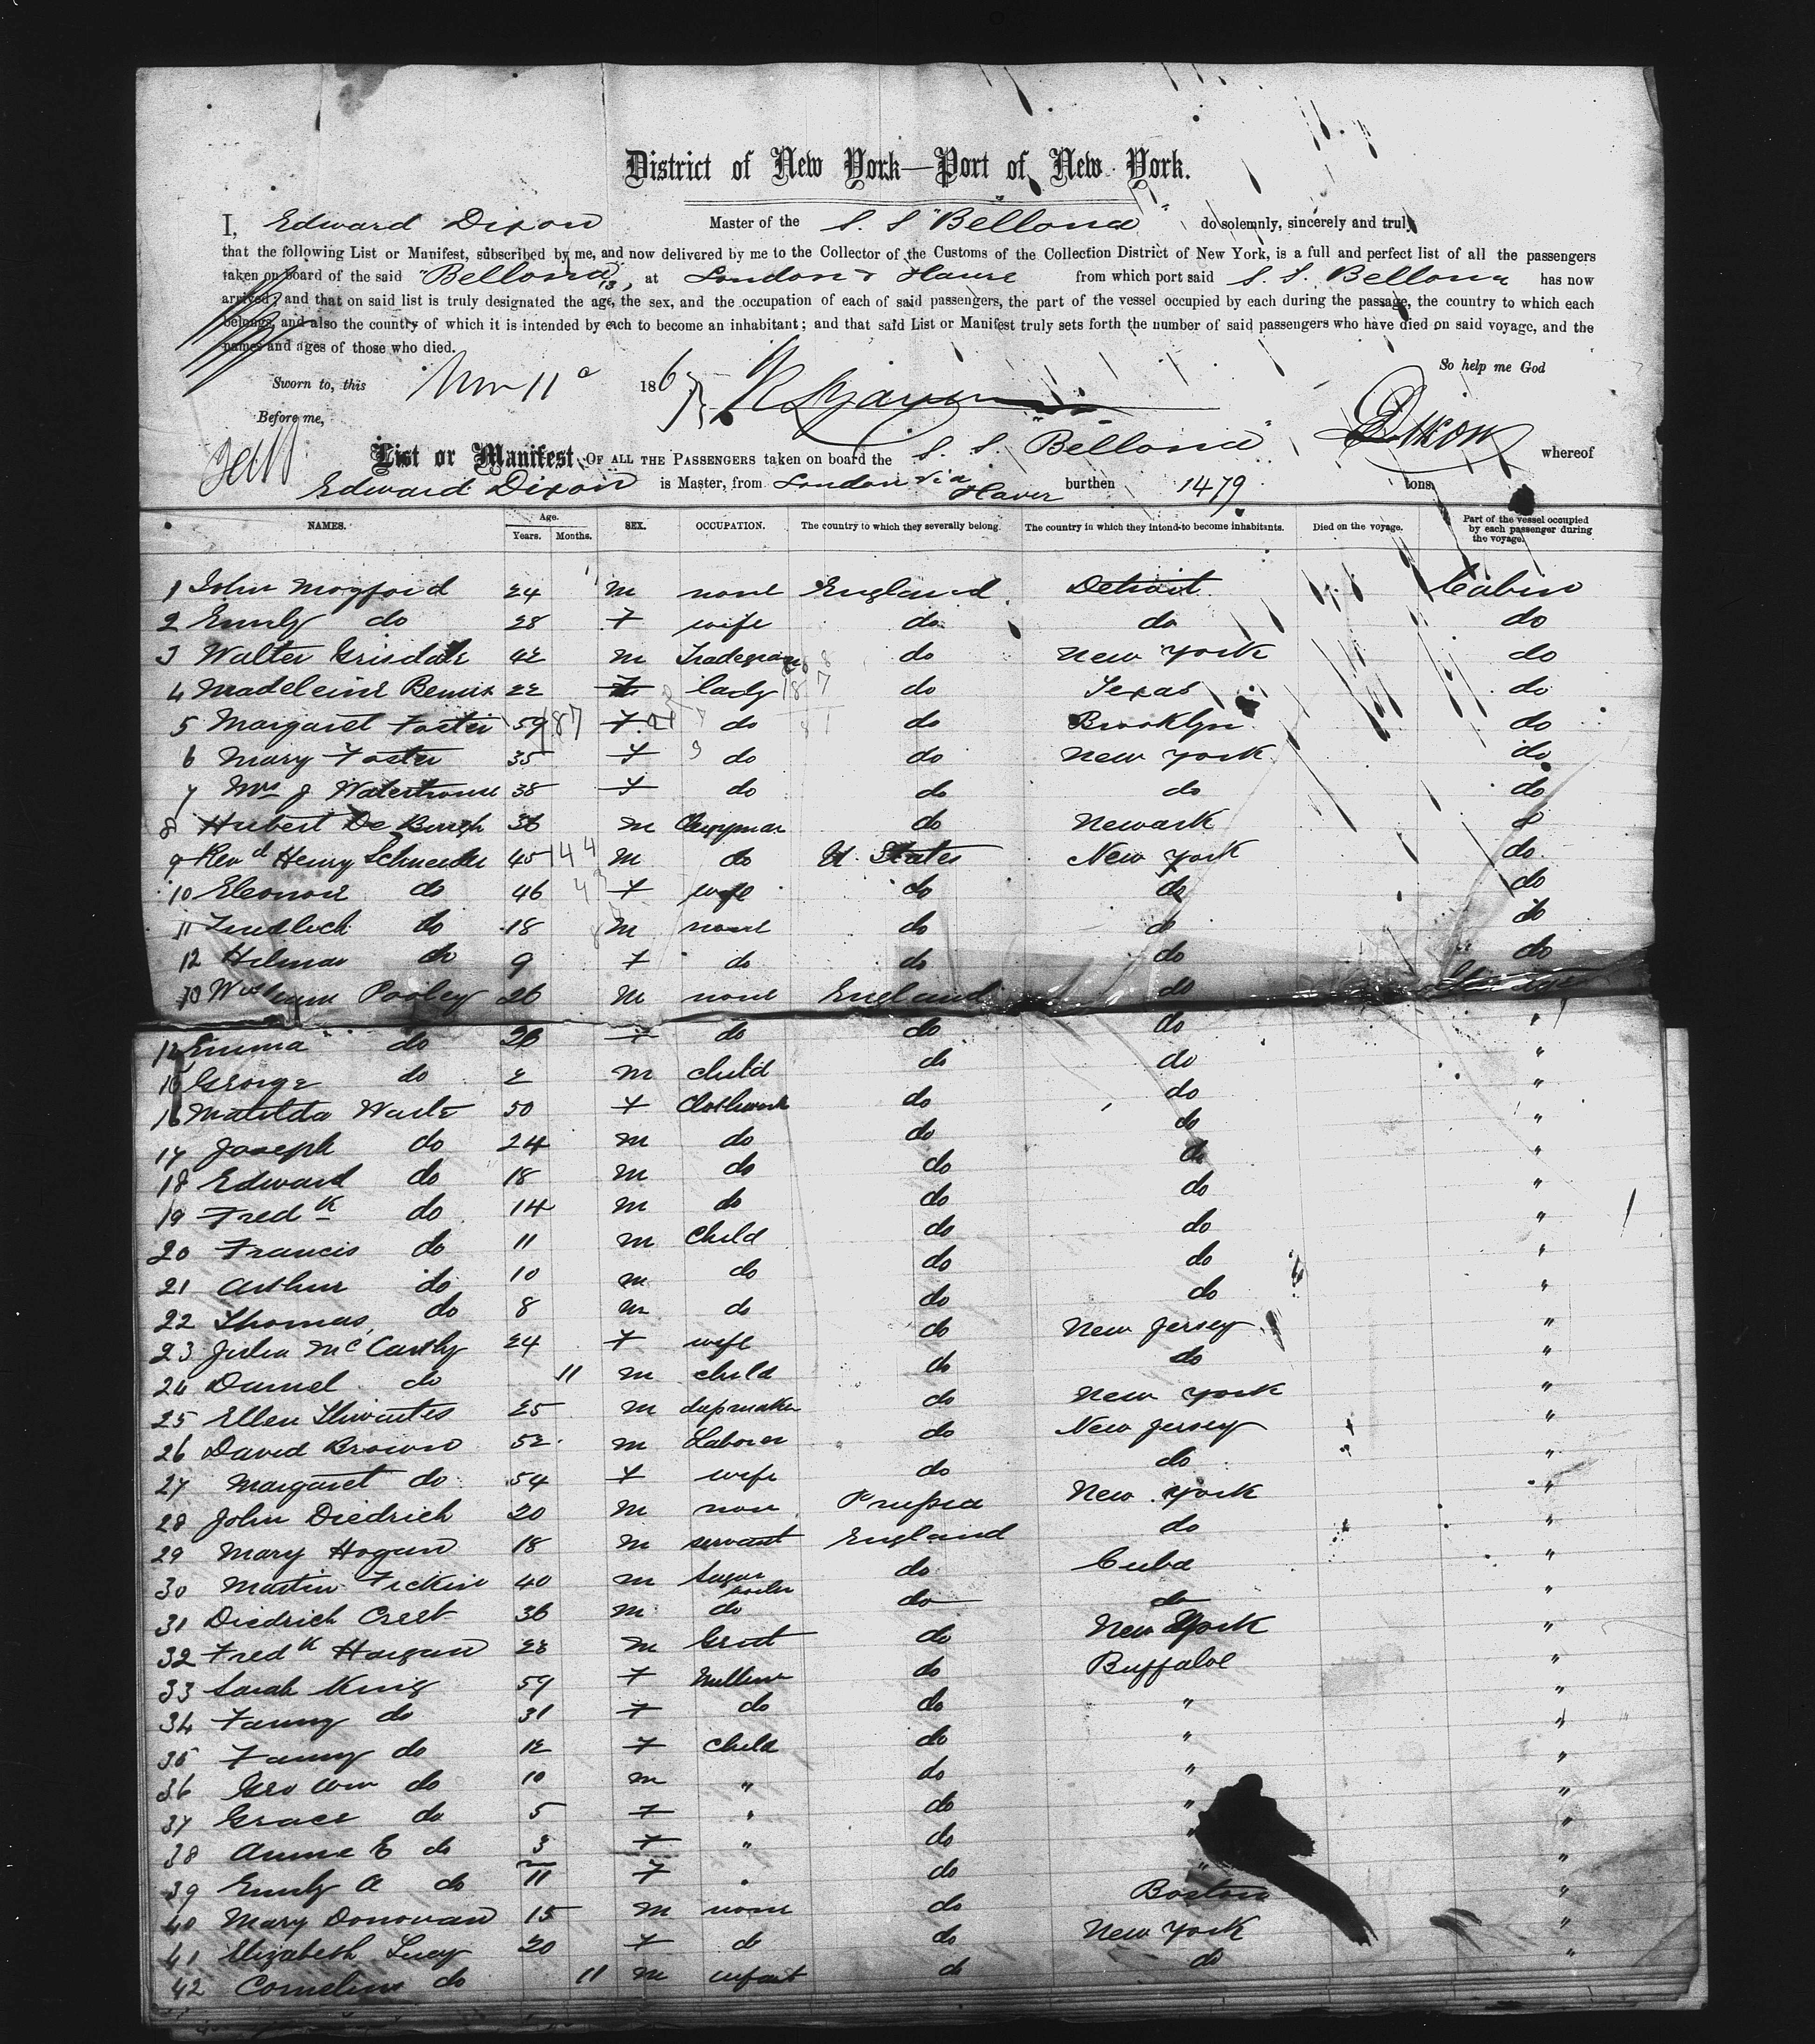 District of New York—Port of New York.
I, Edward Dixon Master of the S. S "Bellona" do solemnly, sincerely and truly
that the following List or Manifest, subscribed by me, and now delivered by me to the Collector of the Customs of the Collection District of New York, is a full and perfect list of all the passengers
taken on board of the said "Bellona", at London & Havre from which port said S. S. Bellona has now
arrived; and that on said list is truly designated the age, the sex, and the occupation of each of said passengers, the part of the vessel occupied by each during the passage, the country to which each
belongs, and also the country of which it is intended by each to become an inhabitant; and that said List or Manifest truly sets forth the number of said passengers who have died on said voyage, and the
names and ages of those who died.
So help me God
Sworn to, this Nov 11 1867
Before me,
EDixon
List or Manifest OF ALL THE PASSENGERS taken on board the S. S. "Bellona" whereof
Edward Dixon is Master, from London via Haver burthen 1479 tons.
NAMES. Age. Years. Months. SEX. OCCUPATION. The country to which they severally belong. The country in which they intend to become inhabitants. Died on the voyage. Part of the vessel occupied by each passenger during the voyage.
1 John Mogford 24 M none England Detroit Cabin
2 Emily do 28 F wife do do do
3 Walter Grisdale 42 M Tradesman do New York do
4 Madeleine 22 F lady do Texas do
5 Margaret Foster 59 F do do Brooklyn do
6 Mary Foster 35 F do do New York do
7 Mrs J Waterhouse 38 F do do do do
8 Hubert De Burgh 36 M Clergyman do Newark do
9 Revd Henry Schneider 45 M do U. States New York do
10 Eleonore do 46 F wife do do do
11 do 18 M none do do do
12 Hilmar do 9 F do do do do
13 William Pooley 26 M none England do Steerage
14 Emma do 26 F do do do "
15 George do 2 M child do do "
16 Matilda Waste 50 F do do "
17 Joseph do 24 M do do do "
18 Edward do 18 M do do do "
19 Fredk do 14 M do do do "
20 Francis do 11 M Child do do "
21 Arthur do 10 M do do do "
22 Thomas do 8 M do do do "
23 Julia McCarthy 24 F wife do New Jersey "
24 Daniel do 11 M child do do "
25 Ellen Thwaites 25 M capmaker do New York "
26 David Brown 52 M Laborer do New Jersey "
27 Margaret do 54 F wife do do "
28 John Diedrich 20 M non Prussia New York "
29 Mary Hogan 18 M servant England do "
30 Martin Fickin 40 M Sugar boiler do Cuba "
31 Diedrich Creet 36 M do do do "
32 Fredk Hargan 28 M do New York "
33 Sarah King 59 F Milliner do Buffaloe "
34 Fanny do 31 F do do " "
35 Fanny do 12 F Child do " "
36 Geo Wm do 10 M " do " "
37 Grace do 5 F " do " "
38 Annie E do 3 F " do " "
39 Emily A do 11 F " do " "
40 Mary Donovan 15 M none do Boston "
41 Elizabeth Lucy 20 F do do New York "
42 Cornelius do 11 M infant do do "